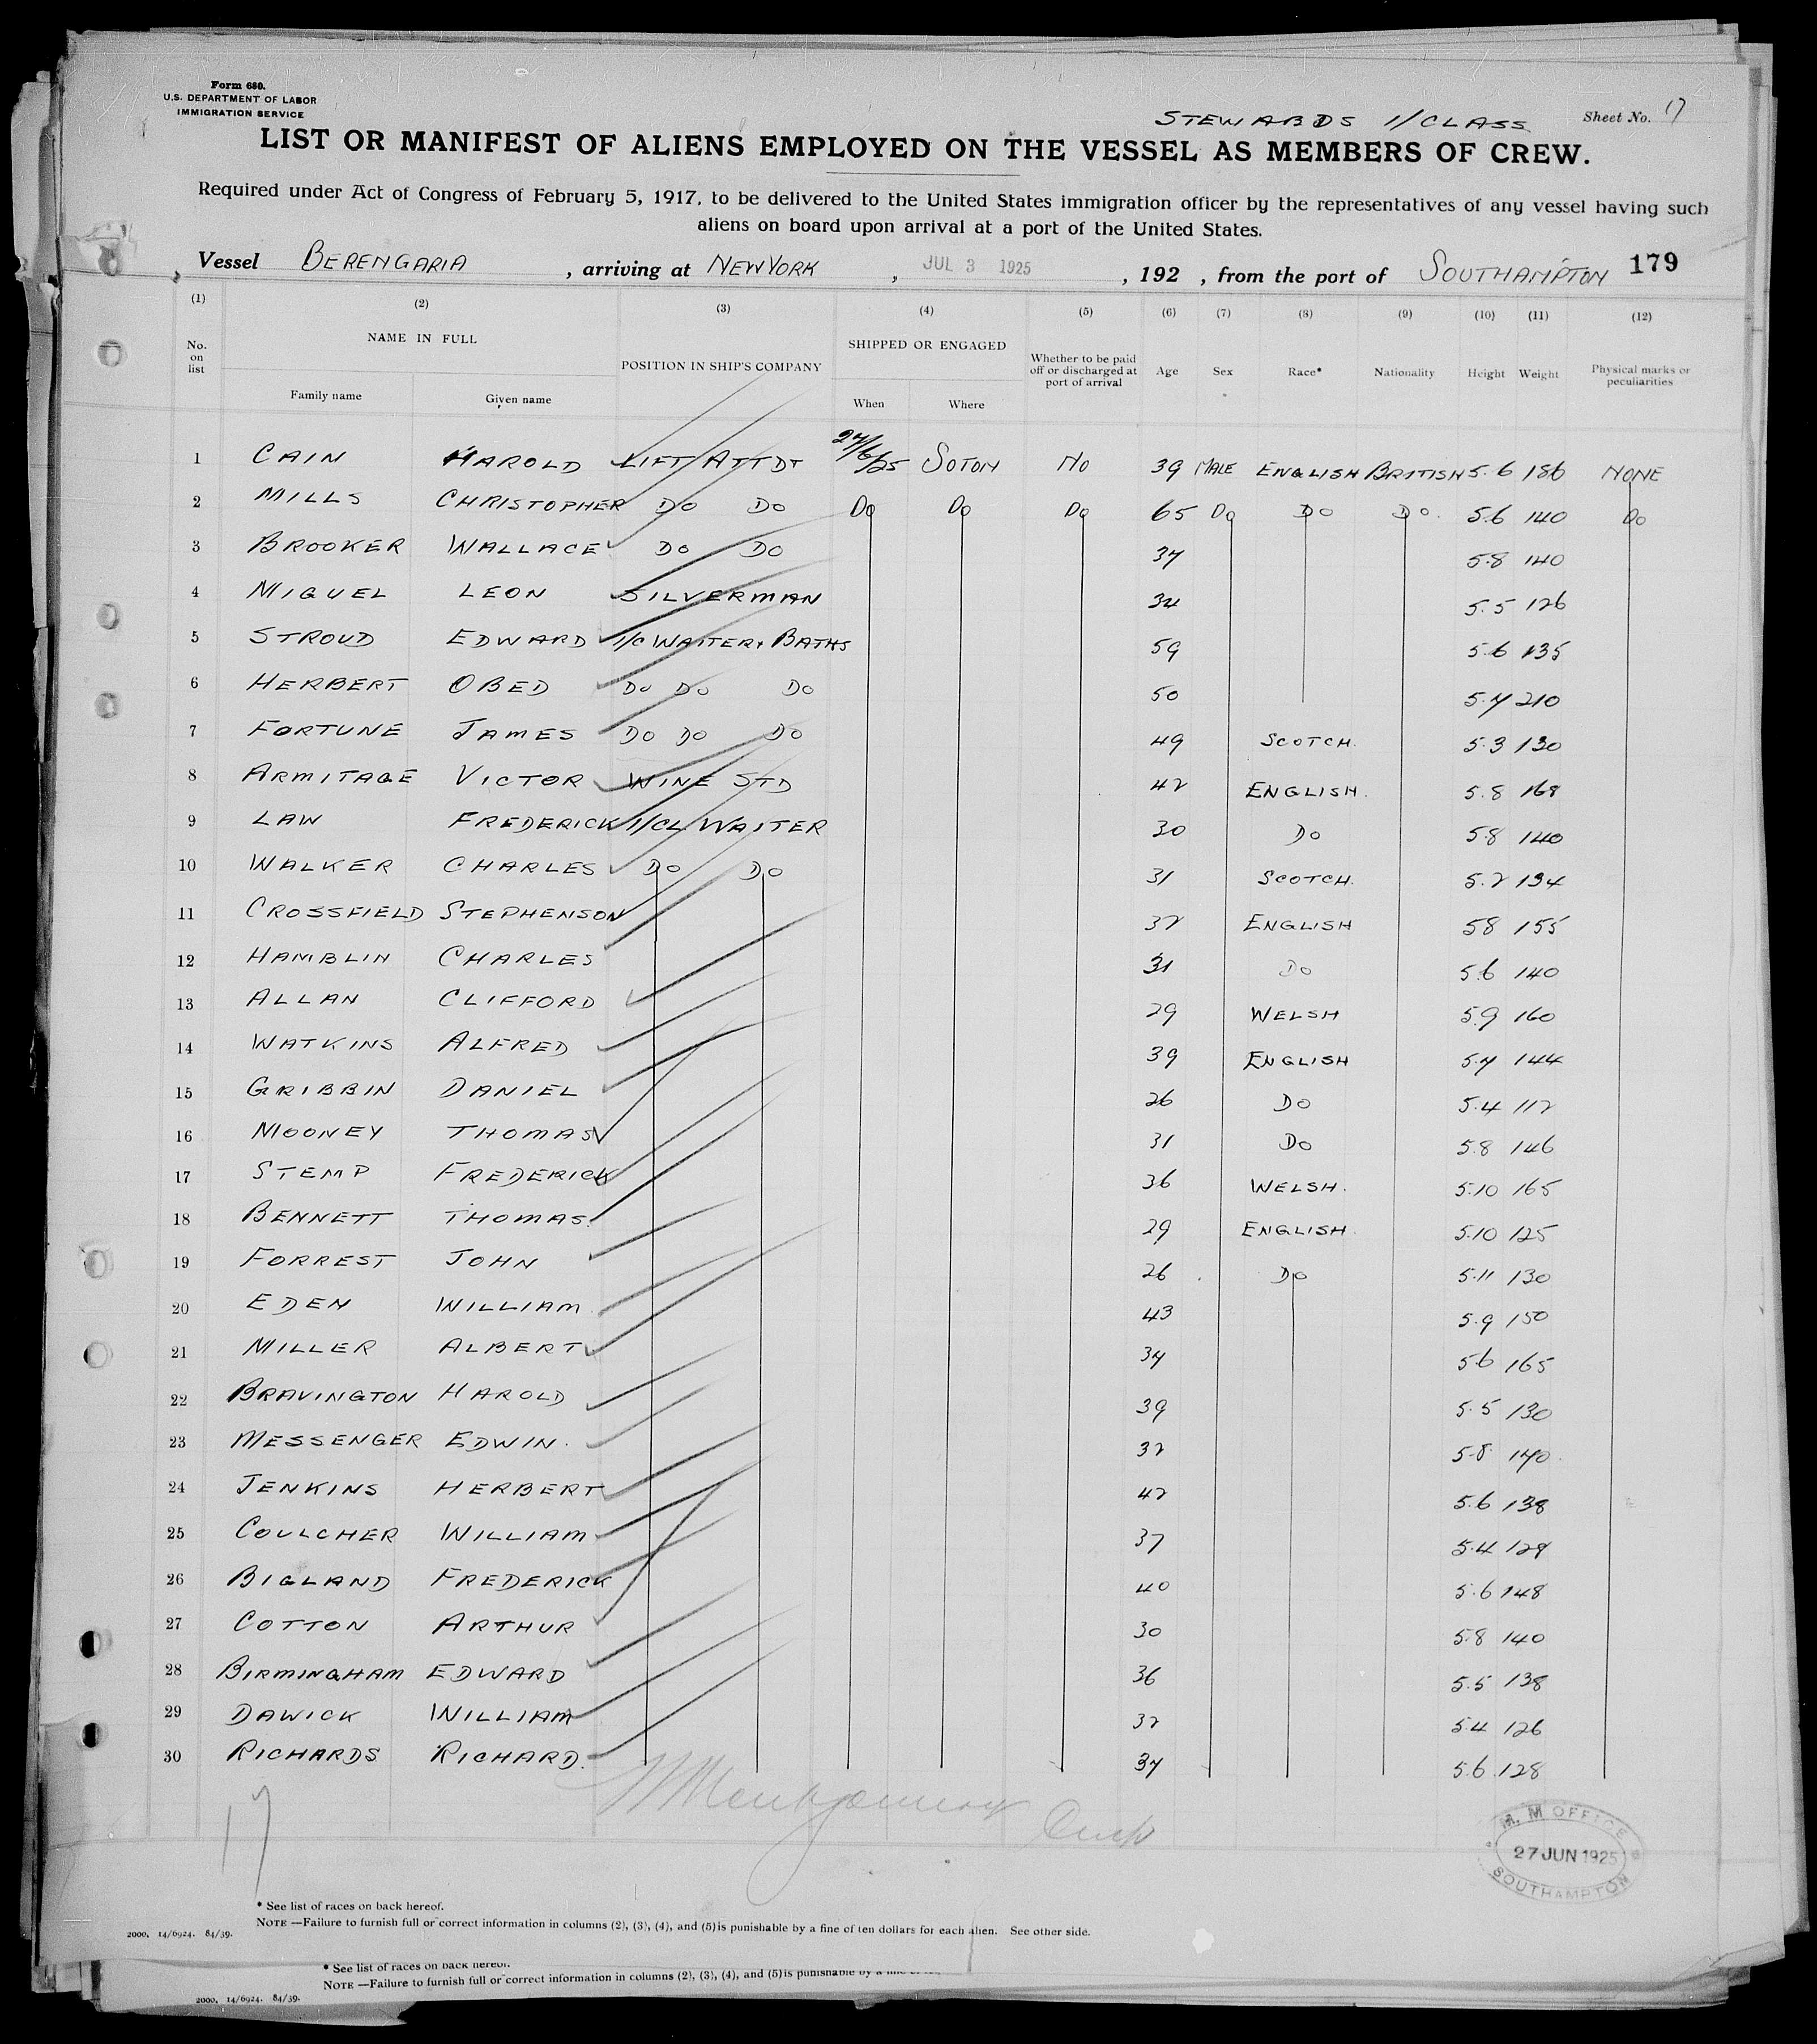 Form 680.
U.S. DEPARTMENT OF LABOR
IMMIGRATION SERVICE
STEWARDS 1/CLASS
Sheet No. 17
LIST OR MANIFEST OF ALIENS EMPLOYED ON THE VESSEL AS MEMBERS OF CREW.
Required under Act of Congress of February 5, 1917, to be delivered to the United States immigration officer by the representatives of any vessel having such
aliens on board upon arrival at a port of the United States.
Vessel BERENGARIA , arriving at NEW YORK , JUL 3 1925 , 192 , from the port of SOUTHAMPTON 179
(1) (2) (3) (4) (5) (6) (7) (8) (9) (10) (11) (12)
No. on list NAME IN FULL Family name Given name POSITION IN SHIP'S COMPANY SHIPPED OR ENGAGED When Where Whether to be paid off or discharged at port of arrival Age Sex Race* Nationality Height Weight Physical marks or peculiarities
1 CAIN HAROLD LIFT ATTDT 27/6/25 SOTON NO 39 MALE ENGLISH BRITISH 5.6 186 NONE
2 MILLS CHRISTOPHER DO DO DO DO DO 65 DO DO DO. 5.6 140 DO
3 BROOKER WALLACE DO DO 37 5.8 140
4 MIGUEL LEON SILVERMAN 34 5.5 126
5 STROUD EDWARD 1/C WAITER, BATHS 59 5.6 135
6 HERBERT OBED DO DO DO 50 5.7 210
7 FORTUNE JAMES DO DO DO 49 SCOTCH. 5.3 130
8 ARMITAGE VICTOR WINE STD 42 ENGLISH. 5.8 168
9 LAW FREDERICK 1/CL WAITER 30 DO 5.8 140
10 WALKER CHARLES DO DO 31 SCOTCH. 5.7 134
11 CROSSFIELD STEPHENSON 32 ENGLISH 5.8 155
12 HAMBLIN CHARLES 31 DO 5.6 140
13 ALLAN CLIFFORD 29 WELSH 5.9 160
14 WATKINS ALFRED 39 ENGLISH 5.7 144
15 GRIBBIN DANIEL 26 DO 5.4 112
16 MOONEY THOMAS 31 DO 5.8 146
17 STEMP FREDERICK 36 WELSH. 5.10 165
18 BENNETT THOMAS. 29 ENGLISH. 5.10 125
19 FORREST JOHN 26 DO 5.11 130
20 EDEN WILLIAM 43 5.9 150
21 MILLER ALBERT 34 5.6 165
22 BRAVINGTON HAROLD 39 5.5 130
23 MESSENGER EDWIN. 32 5.8 140
24 JENKINS HERBERT 42 5.6 138
25 COULCHER WILLIAM 37 5.4 129
26 BIGLAND FREDERICK 40 5.6 148
27 COTTON ARTHUR 30 5.8 140
28 BIRMINGHAM EDWARD 36 5.5 138
29 DAWICK WILLIAM 32 5.4 126
30 RICHARDS RICHARD. 37 5.6 128
17
M. M. OFFICE
27 JUN 1925
SOUTHAMPTON
* See list of races on back hereof.
NOTE —Failure to furnish full or correct information in columns (2), (3), (4), and (5) is punishable by a fine of ten dollars for each alien. See other side.
2000, 14/6924. 84/39.
* See list of races on back hereof.
NOTE —Failure to furnish full or correct information in columns (2), (3), (4), and (5) is punishable by a
2000, 14/6924. 84/39.